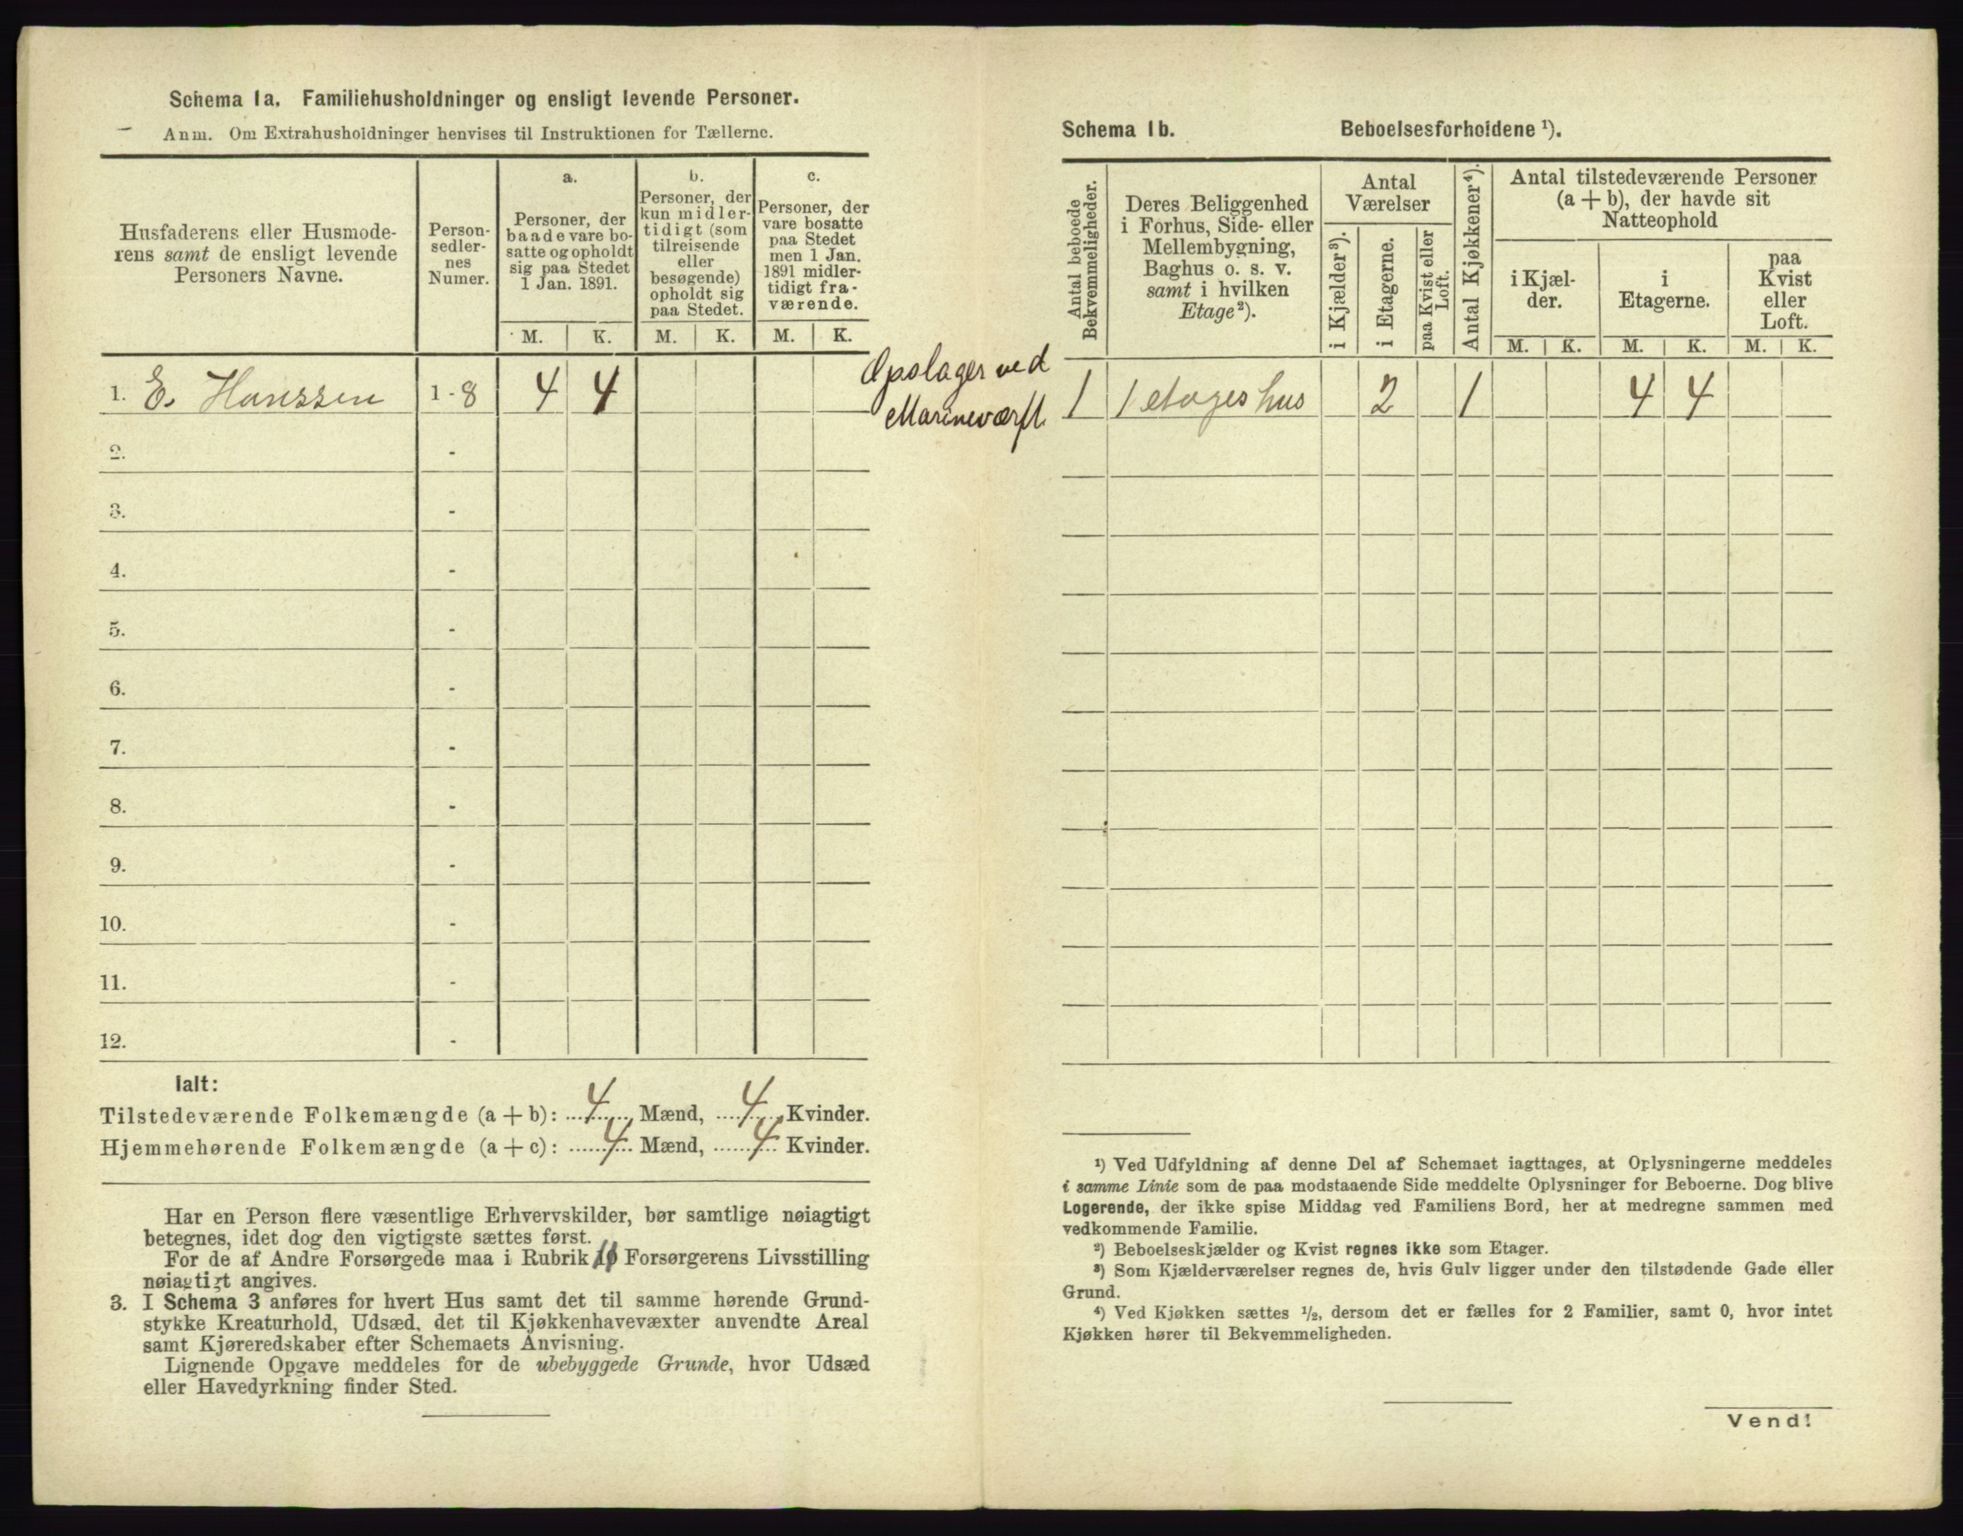 Schema 1a. Familiehusholdninger og ensligt levende Personer.
Anm. Om Extrahusholdninger henvises til Instruktionen for Tællerne.
Husfaderens eller Husmode-
rens samt de ensligt levende
Personers Navne.
Person-
sedler-
nes
Numer.
a.
Personer, der
baade vare bo-
satte og opholdt
sig paa Stedet
1 Jan. 1891.
b.
Personer, der
kun midler-
tidigt (som
tilreisende
eller
besøgende)
opholdt sig
paa Stedet.
c.
Personer, der
vare bosatte
paa Stedet
men 1 Jan.
1891 midler-
tidigt fra-
værende.
M. K. M. K. M. K.
1. E. Hanssen 1 - 8 4 4
Opslager ved
Marineværft.
2. -
3. -
4. -
5. -
6. -
7. -
8. -
9. -
10. -
11. -
12. -
Ialt:
Tilstedeværende Folkemængde (a + b): 4 Mænd, 4 Kvinder.
Hjemmehørende Folkemængde (a + c): 4 Mænd, 4 Kvinder.
Har en Person flere væsentlige Erhvervskilder, bør samtlige nøiagtigt
betegnes, idet dog den vigtigste sættes først.
For de af Andre Forsørgede maa i Rubrik 11 Forsørgerens Livsstilling
nøiagtigt angives.
3. I Schema 3 anføres for hvert Hus samt det til samme hørende Grund-
stykke Kreaturhold, Udsæd, det til Kjøkkenhavevæxter anvendte Areal
samt Kjøreredskaber efter Schemaets Anvisning.
Lignende Opgave meddeles for de ubebyggede Grunde, hvor Udsæd
eller Havedyrkning finder Sted.
Schema 1b. Beboelsesforholdene ¹).
Antal beboede
Bekvemmeligheder.
Deres Beliggenhed
i Forhus, Side- eller
Mellembygning,
Baghus o. s. v.
samt i hvilken
Etage²).
Antal
Værelser
i Kjælder³).
i Etagerne.
paa Kvist eller
Loft.
Antal Kjøkkener⁴).
Antal tilstedeværende Personer
(a + b), der havde sit
Natteophold
i Kjæl-
der.
i
Etagerne.
paa
Kvist
eller
Loft.
M. K. M. K. M. K.
1 1 etages hus 2 1 4 4
¹) Ved Udfyldning af denne Del af Schemaet iagttages, at Oplysningerne meddeles
i samme Linie som de paa modstaaende Side meddelte Oplysninger for Beboerne. Dog blive
Logerende, der ikke spise Middag ved Familiens Bord, her at medregne sammen med
vedkommende Familie.
²) Beboelseskjælder og Kvist regnes ikke som Etager.
³) Som Kjælderværelser regnes de, hvis Gulv ligger under den tilstødende Gade eller
Grund.
⁴) Ved Kjøkken sættes ½, dersom det er fælles for 2 Familier, samt 0, hvor intet
Kjøkken hører til Bekvemmeligheden.
Vend!